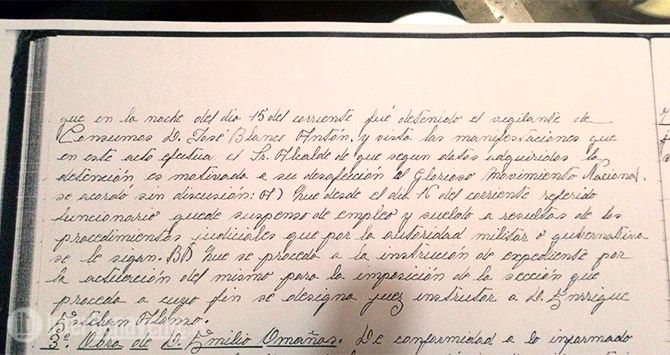 que en la noche del dia 15 del corriente fué detenido el vigilante de
Consumos D. José Blanco Antón, y vista las manifestaciones que
en este acto efectua el Sr. Alcalde de que segun datos adquiridos la
detención es motivada a su desafección al Glorioso Movimiento Nacional,
se acordó sin discusión: A) Que desde el dia 16 del corriente referido
funcionario quede suspenso de empleo y sueldo a resultas de los
procedimientos judiciales que por la autoridad militar o gubernativa
se le sigan. B) Que se proceda a la instrución de expediente por
la actuación del mismo para la imposición de la sección que
proceda a cuyo fin se designa juez instrutor a D. Enrique
Esteban Alonso.
3º. Obra de D. Emilio Omañas. De conformidad a lo informado